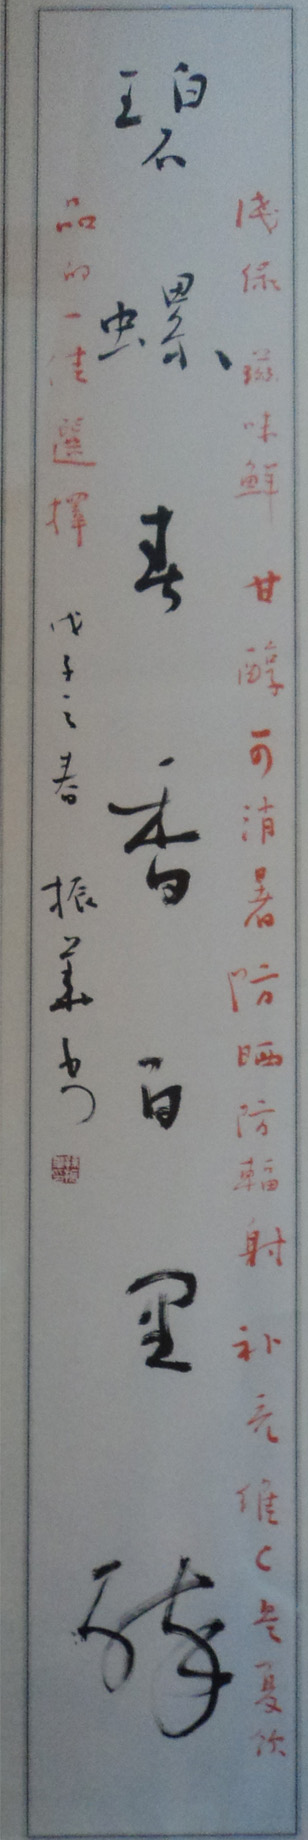 浅绿 滋味鲜 甘醇可消暑防晒防辐射 补充维C是夏饮
碧螺春香百里醉
品的一佳選擇
戊子之春 振華書